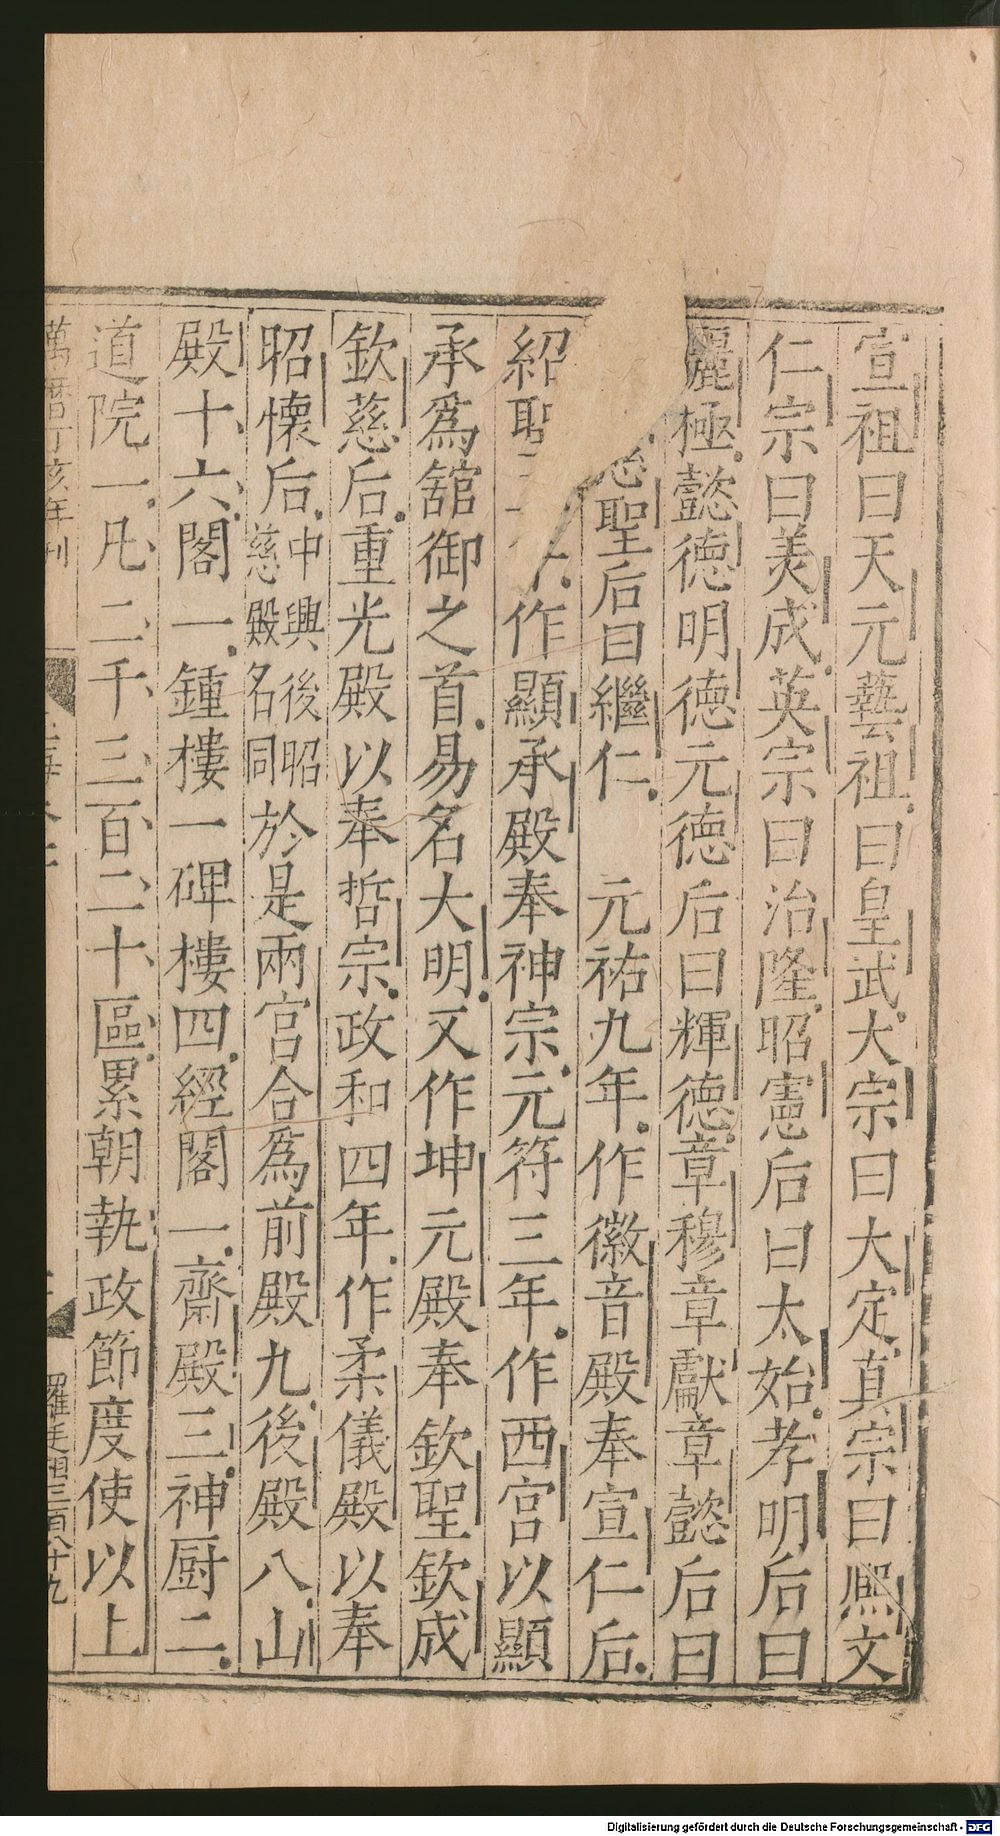 宣祖曰天元藝祖曰皇武大宗曰大定真宗曰熈文
仁宗曰美成英宗曰治隆昭憲后曰太始孝明后曰
麗極懿德明德元德后曰輝德章穆章獻章懿后曰
聖后曰繼仁 元祐九年作徽音殿奉宣仁后
紹聖作顯承殿奉神宗元符三年作西宮以顯
承爲舘御之首易名大明又作坤元殿奉欽聖欽成
欽慈后重光殿以奉哲宗政和四年作柔儀殿以奉
昭懷后中興後昭慈殿名同於是兩宮合爲前殿九後殿八山
殿十六閣一鍾樓一碑樓四經閣一齋殿三神厨二
道院一凡二千三百二十區累朝執政節度使以上
萬曆丁亥年刊
三百八十九
Digitalisierung gefördert durch die Deutsche Forschungsgemeinschaft - DFG